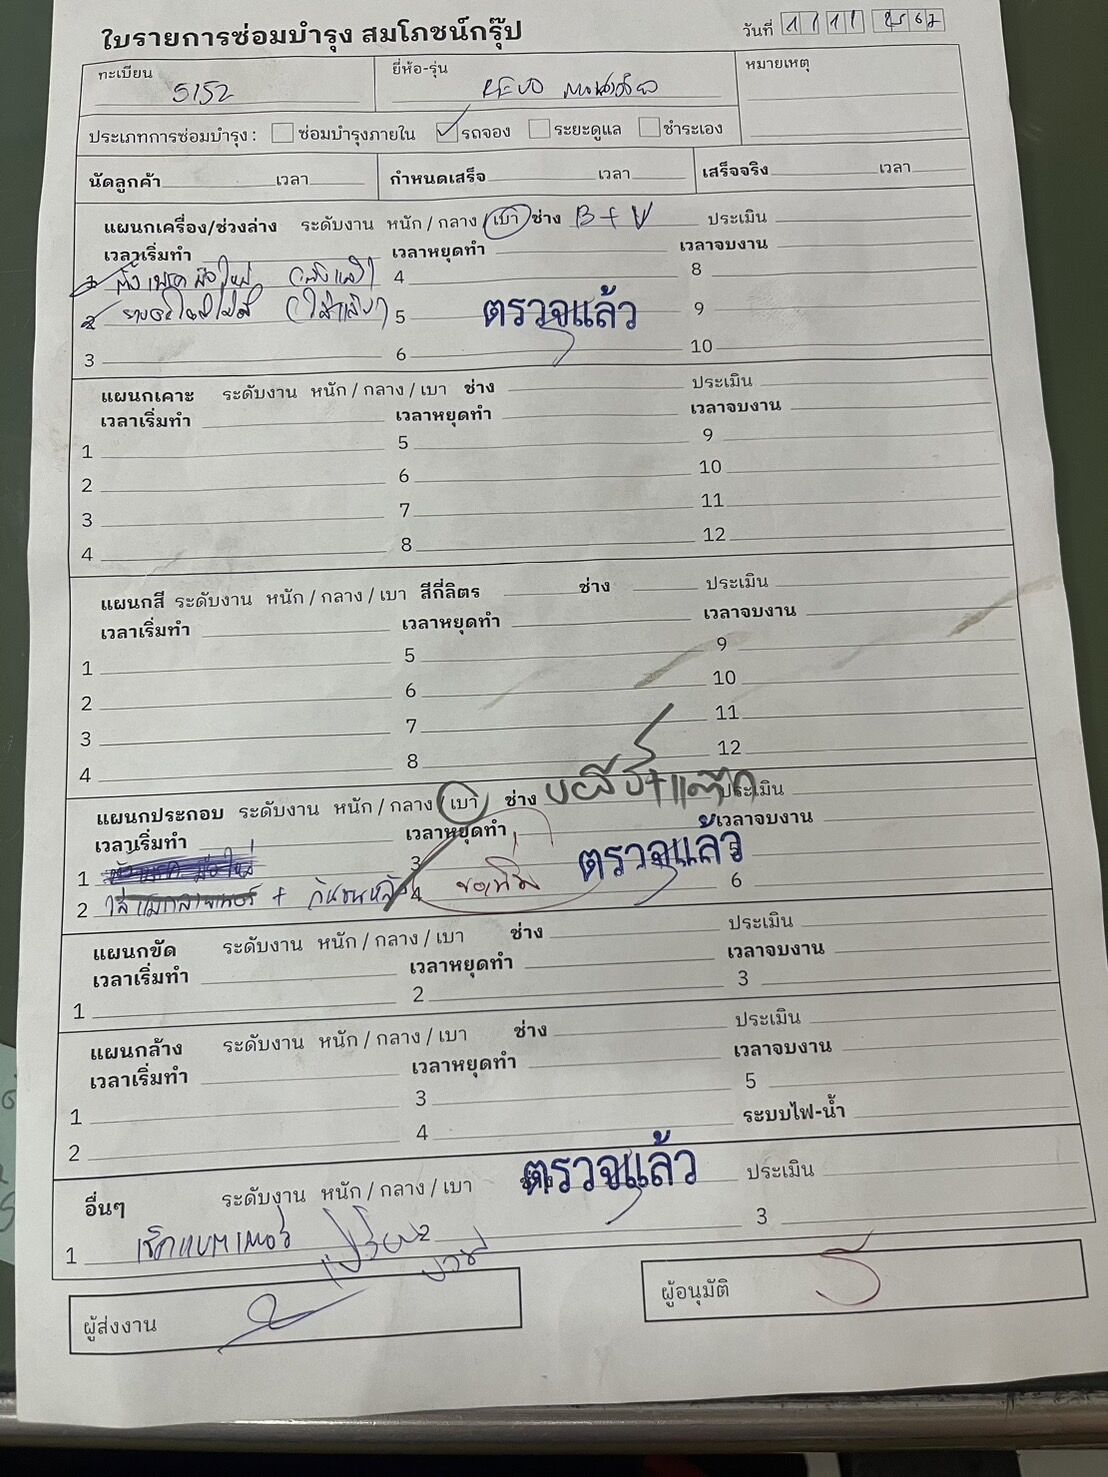 ใบรายการซ่อมบำรุง สมโภชน์กรุ๊ป
วันที่ 1 1 1 1 2567
ทะเบียน 5152
ยี่ห้อ-รุ่น REVO
หมายเหตุ
ประเภทการซ่อมบำรุง : ซ่อมบำรุงภายใน รถจอง ระยะดูแล ชำระเอง
นัดลูกค้า เวลา กำหนดเสร็จ เวลา เสร็จจริง เวลา
แผนกเครื่อง/ช่วงล่าง ระดับงาน หนัก / กลาง / เบา ช่าง B + V ประเมิน
เวลาเริ่มทำ เวลาหยุดทำ เวลาจบงาน
1 ตั้งเบรคมือใหม่ 4 8
2 5 ตรวจแล้ว 9
3 6 10
แผนกเคาะ ระดับงาน หนัก / กลาง / เบา ช่าง ประเมิน
เวลาเริ่มทำ เวลาหยุดทำ เวลาจบงาน
1 5 9
2 6 10
3 7 11
4 8 12
แผนกสี ระดับงาน หนัก / กลาง / เบา สีกี่ลิตร ช่าง ประเมิน
เวลาเริ่มทำ เวลาหยุดทำ เวลาจบงาน
1 5 9
2 6 10
3 7 11
4 8 12
แผนกประกอบ ระดับงาน หนัก / กลาง / เบา ช่าง ประเมิน
เวลาเริ่มทำ เวลาหยุดทำ เวลาจบงาน
1 3 ตรวจแล้ว 5
2 + กันชนหลัง 4 6
แผนกขัด ระดับงาน หนัก / กลาง / เบา ช่าง ประเมิน
เวลาเริ่มทำ เวลาหยุดทำ เวลาจบงาน
1 2 3
แผนกล้าง ระดับงาน หนัก / กลาง / เบา ช่าง ประเมิน
เวลาเริ่มทำ เวลาหยุดทำ เวลาจบงาน
1 3 5
2 4 ระบบไฟ-น้ำ
อื่นๆ ระดับงาน หนัก / กลาง / เบา ตรวจแล้ว ประเมิน
1 เช็คแบตเตอรี่ 2 3
ผู้ส่งงาน
ผู้อนุมัติ